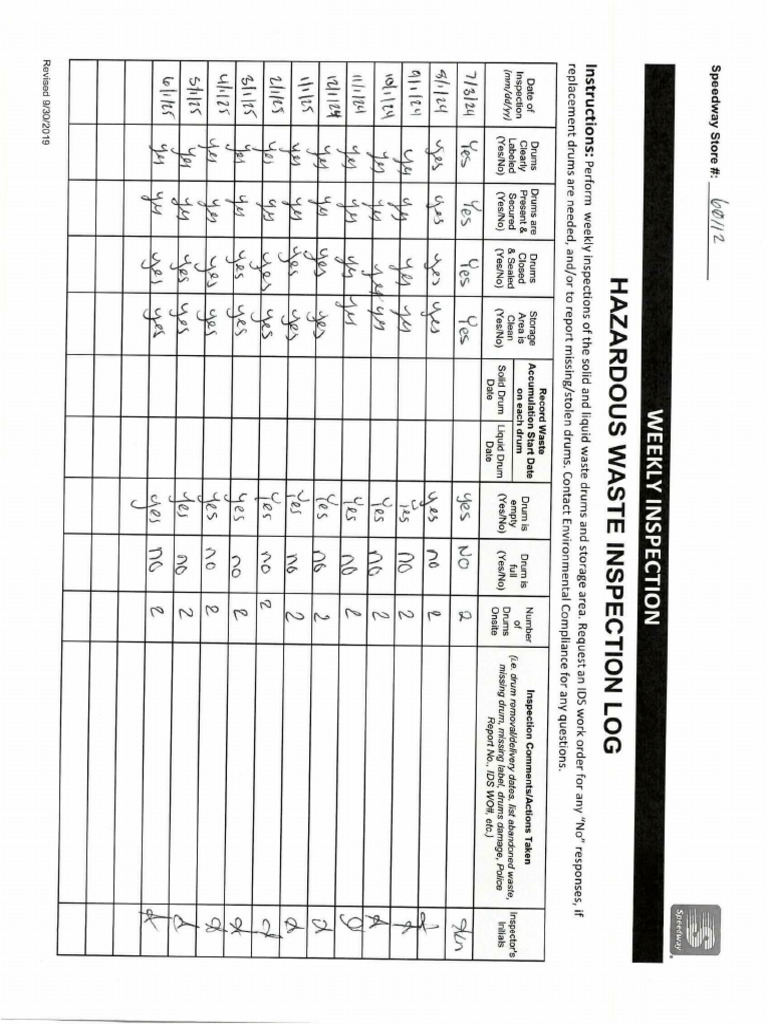 Speedway Store #: 60112
Speedway
WEEKLY INSPECTION
HAZARDOUS WASTE INSPECTION LOG
Instructions: Perform weekly inspections of the solid and liquid waste drums and storage area. Request an IDS work order for any "No" responses, if
replacement drums are needed, and/or to report missing/stolen drums. Contact Environmental Compliance for any questions.
Date of Inspection (mm/dd/yr) Drums Clearly Labeled (Yes/No) Drums are Present & Secured (Yes/No) Drums Closed & Sealed (Yes/No) Storage Area is Clean (Yes/No) Record Waste Accumulation Start Date on each drum Solid Drum Date Liquid Drum Date Drum is empty (Yes/No) Drum is full (Yes/No) Number of Drums Onsite Inspection Comments/Actions Taken (i.e. drum removal/delivery dates, list abandoned waste, missing drum, missing label, drums damage, Police Report No., IDS WO#, etc.) Inspector's Initials
7/3/24 Yes Yes Yes Yes yes NO 2
8/1/24 yes yes yes yes yes no 2
9/1/24 yes yes yes yes yes no 2
10/1/24 yes yes yes yes yes no 2
11/1/24 yes yes yes yes yes no 2
12/1/24 yes yes yes yes yes no 2
1/1/25 yes yes yes yes yes no 2
2/1/25 yes yes yes yes yes no 2
3/1/25 yes yes yes yes yes no 2
4/1/25 yes yes yes yes yes no 2
5/1/25 yes yes yes yes yes no 2
6/1/25 yes yes yes yes yes no 2
Revised 9/30/2019